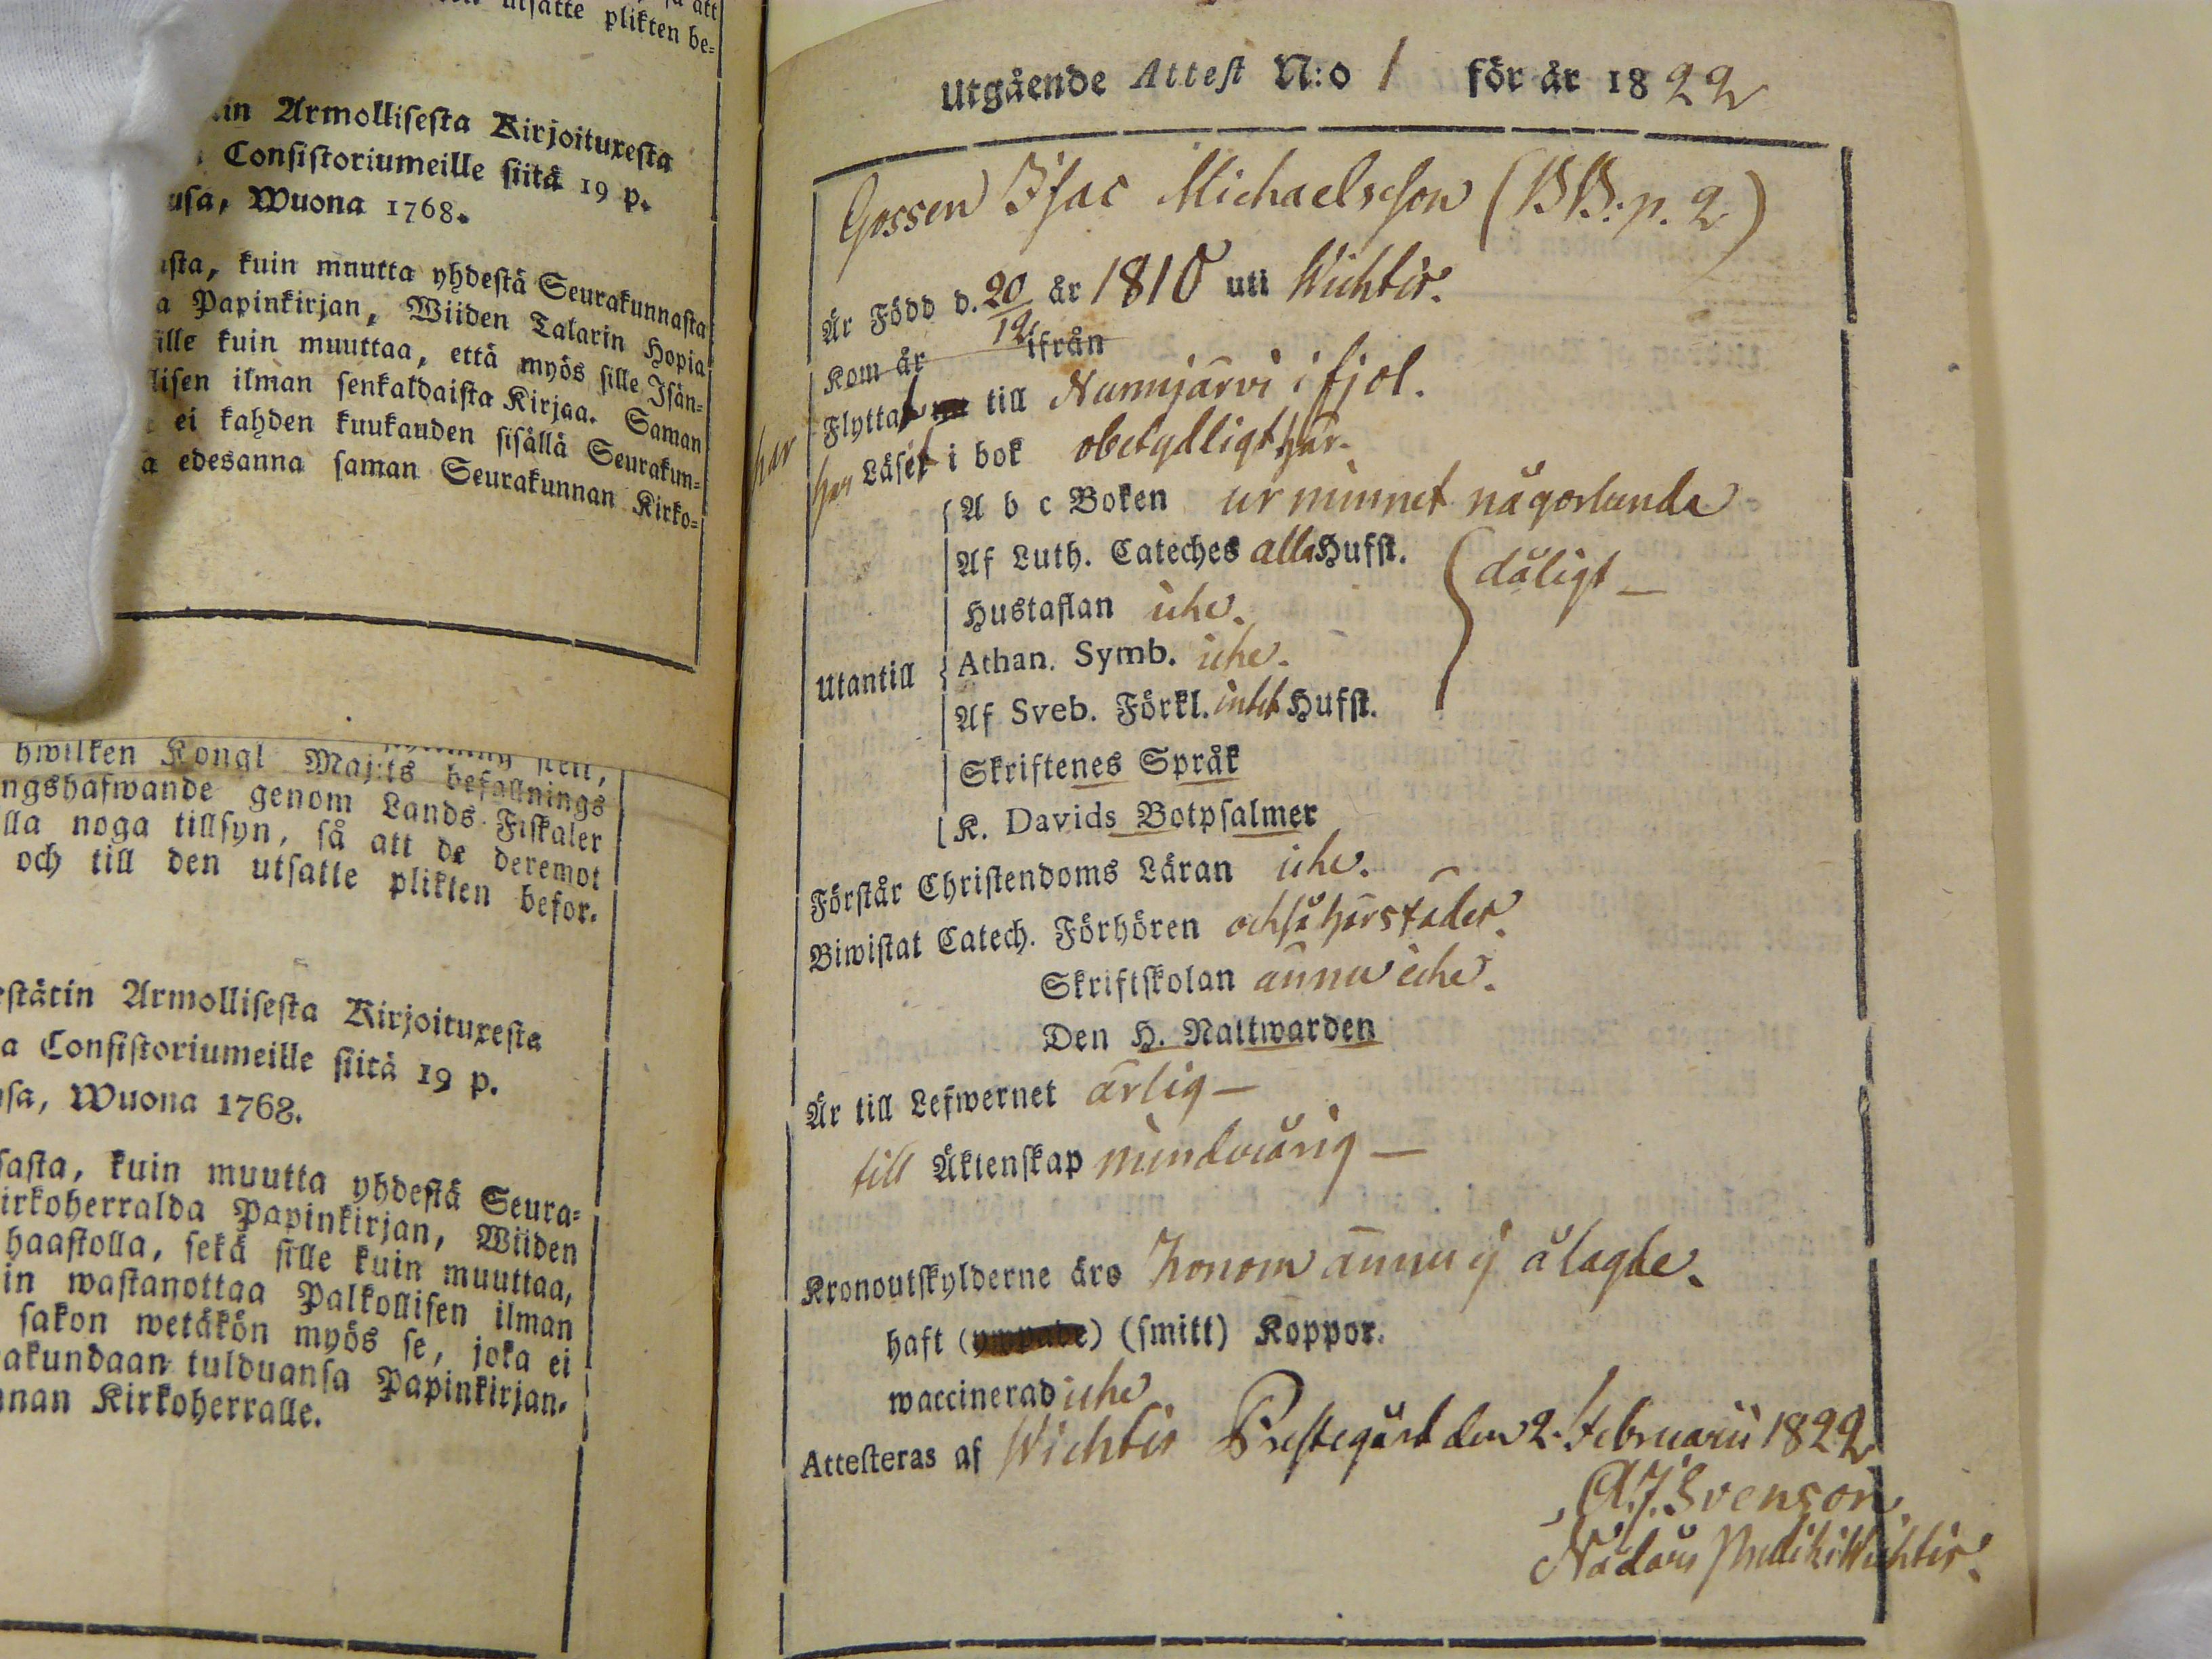 utsatte plikten be=
Armollisesta Kirjoituxesta
Consistoriumeille siitä 19 p.
usa, Wuona 1768.
kuin muutta yhdestä Seurakunnasta
a Papinkirjan, Wiiden Talarin Hopia
ille kuin muuttaa, että myös sille Isän=
lisen ilman senkaldaista Kirjaa. Saman
ei kahden kuukauden sisällä Seurakun=
a edesanna saman Seurakunnan Kirko=
hwilken Kongl Maj:ts befallnings
ngshafwande genom Lands Fiskaler
lla noga tillsyn, så att de deremot
och till den utsatte plikten befor.
estätin Armollisesta Kirjoituxesta
a Consistoriumeille siitä 19 p.
sa, Wuona 1768.
sasta, kuin muutta yhdestä Seura=
irkoherralda Papinkirjan, Wiiden
haastolla, sekä sille kuin muuttaa,
in wastanottaa Palkollisen ilman
sakon wetäkön myös se, joka ei
akundaan tulduansa Papinkirjan.
nnan Kirkoherralle.
Utgående Attest N:o 1 för år 1822
Gossen Isac Michaelsson (BB. p. 2)
Är Född d. 20/12 år 1810 uti Wichtis.
Kom år ifrån
Flyttat till Nummjärvi i fjol.
har har Läsit i bok obetydligt här.
A b c Boken ur minnet någorlunda
Af Luth. Cateches alla Hufst.
dåligt —
Hustaflan icke.
Utantill Athan. Symb. icke.
Af Sveb. Förkl. intet Hufst.
Skriftenes Språk
K. Davids Botpsalmer
Förstår Christendoms Läran icke.
Biwistat Catech. Förhören också härstädes.
Skriftskolan ännu icke.
Den H. Nattwarden
Är till Lefwernet ärlig —
till Äktenskap minderårig —
Kronoutskylderne äro honom ännu ej ålagde.
haft ( ) (smitt) Koppor.
waccinerad icke
Attesteras af Wichtis Prestegård den 2. Februarii 1822
A. J. Svenson.
Nådårs Predik. i Wichtis.